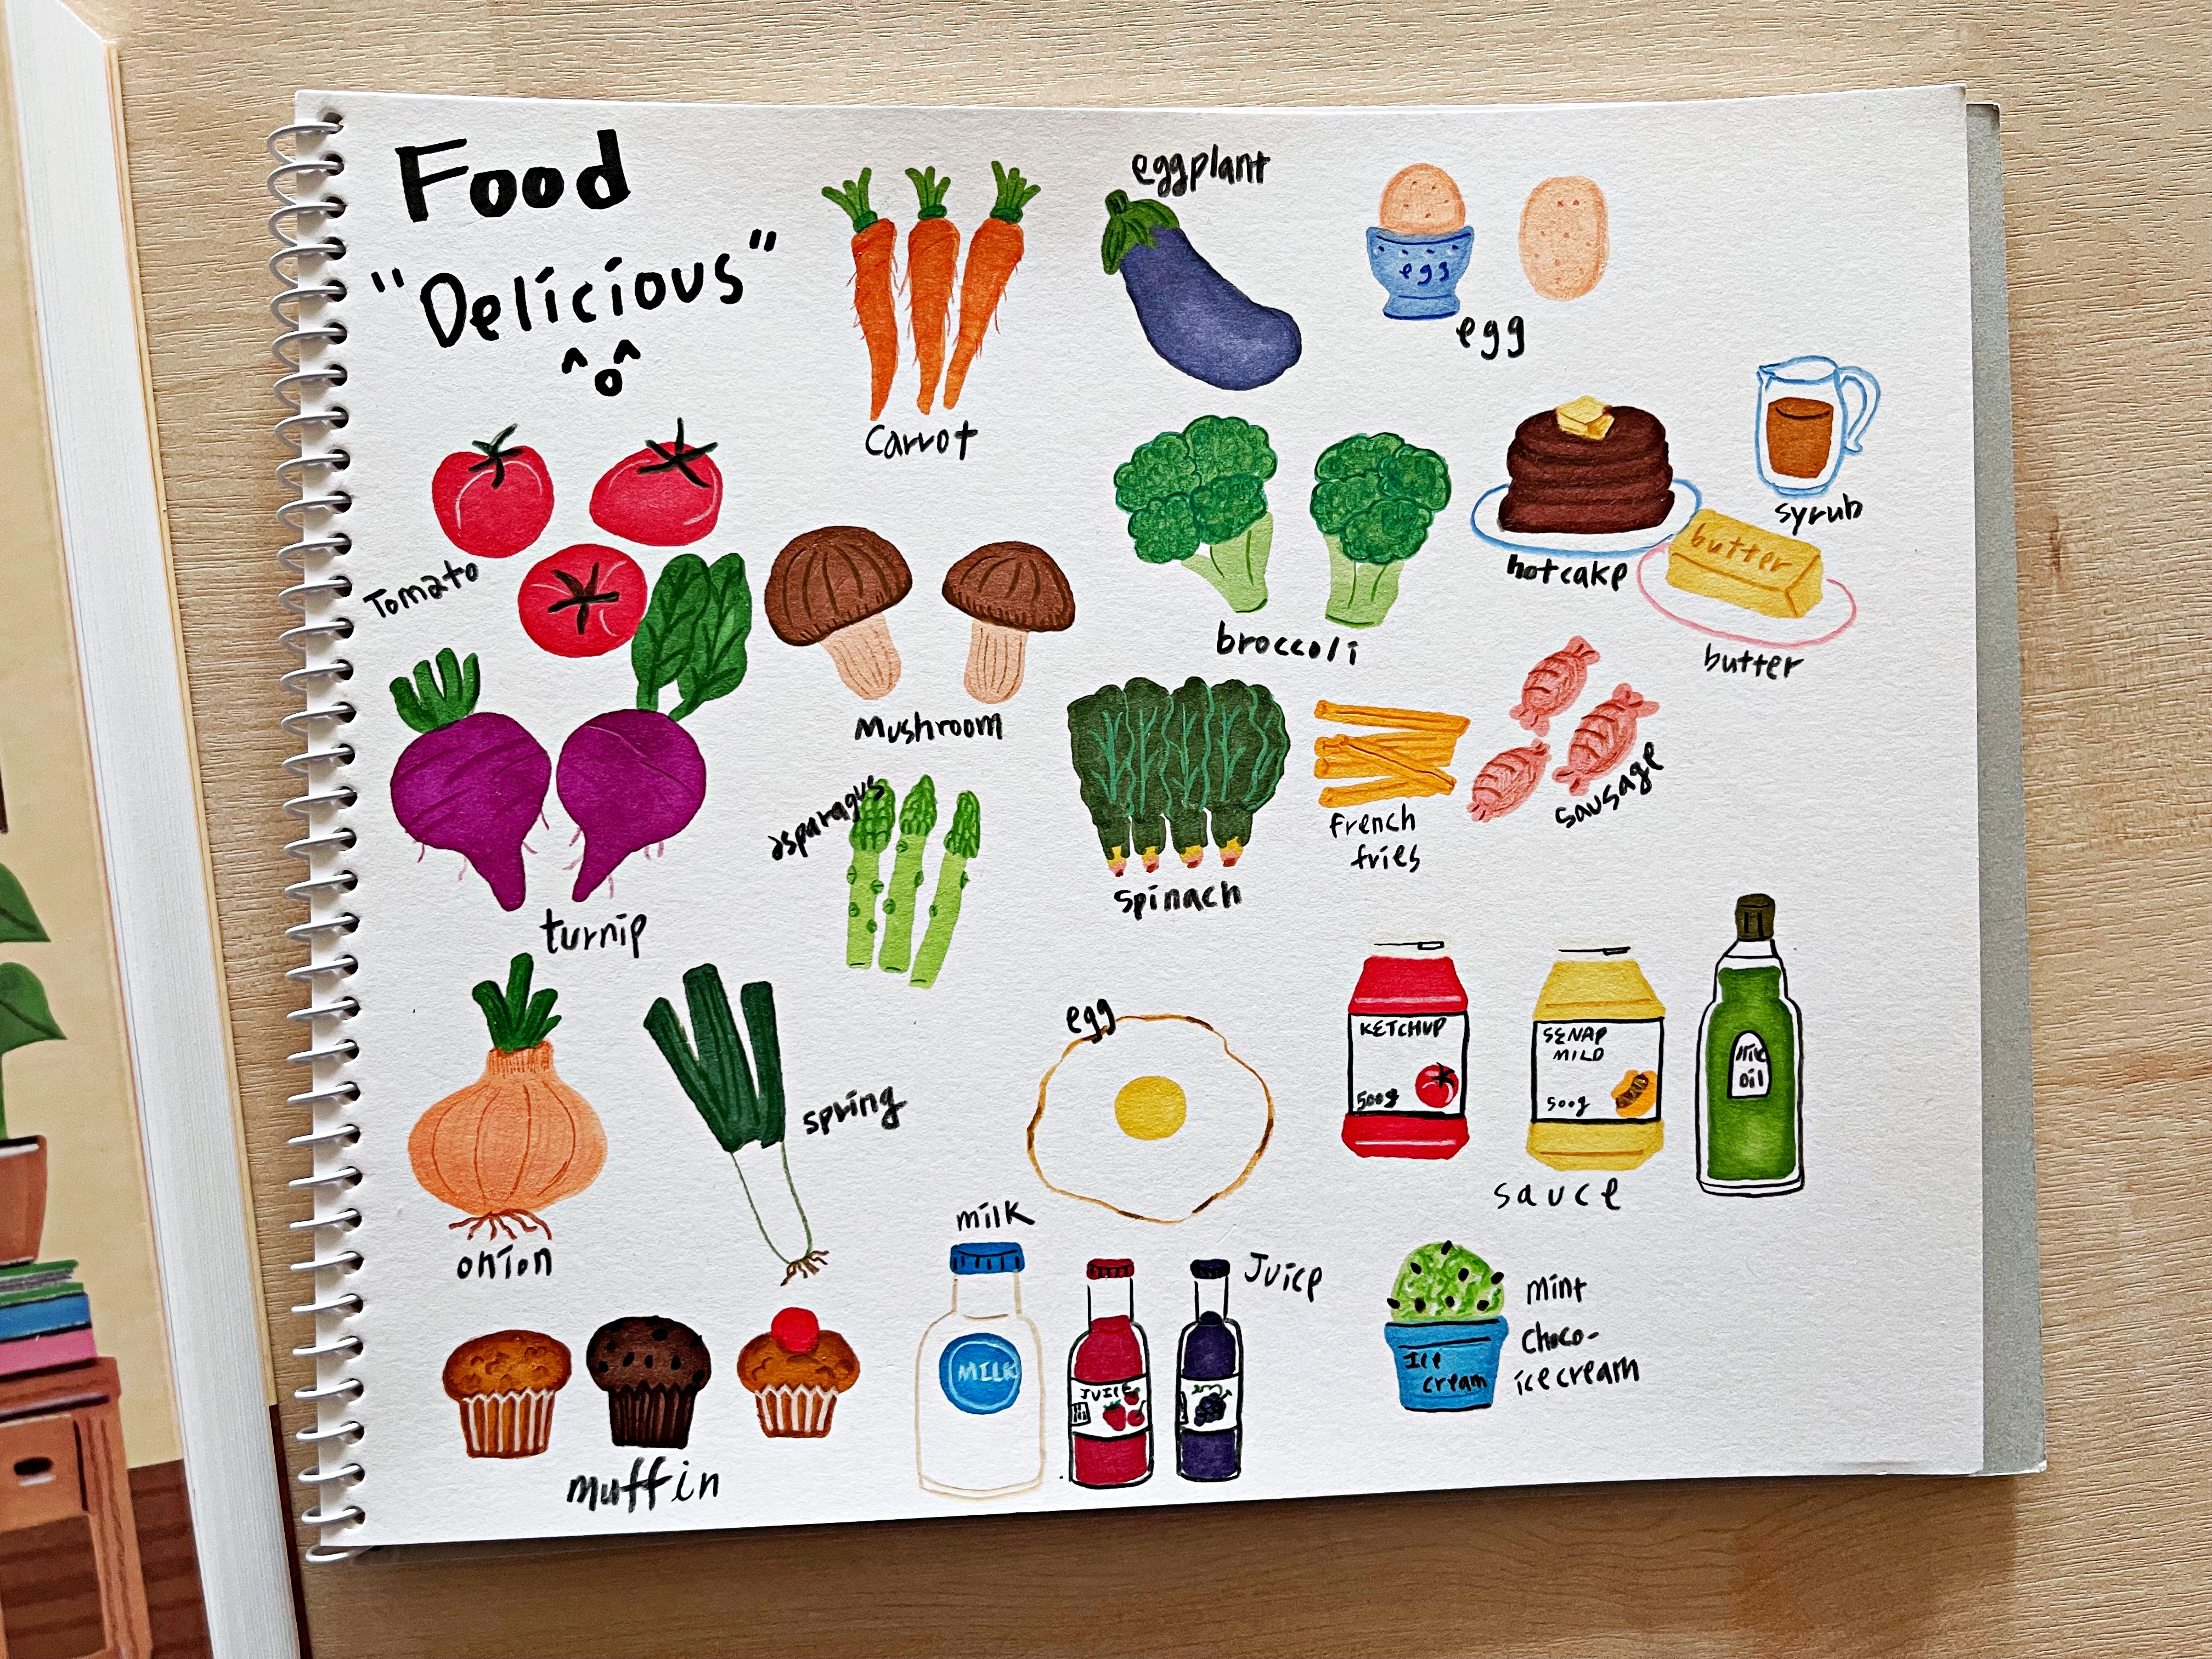 Food
"Delicious"
eggplant
egg
egg
carrot
syrub
butter
hotcake
butter
Tomato
broccoli
Mushroom
asparagus
french
fries
sausage
spinach
turnip
egg
KETCHUP
500g
SENAP
MILD
500g
oil
sauce
spring
onion
milk
MILK
JUICE
Juice
Ice
cream
mint
choco-
icecream
muffin